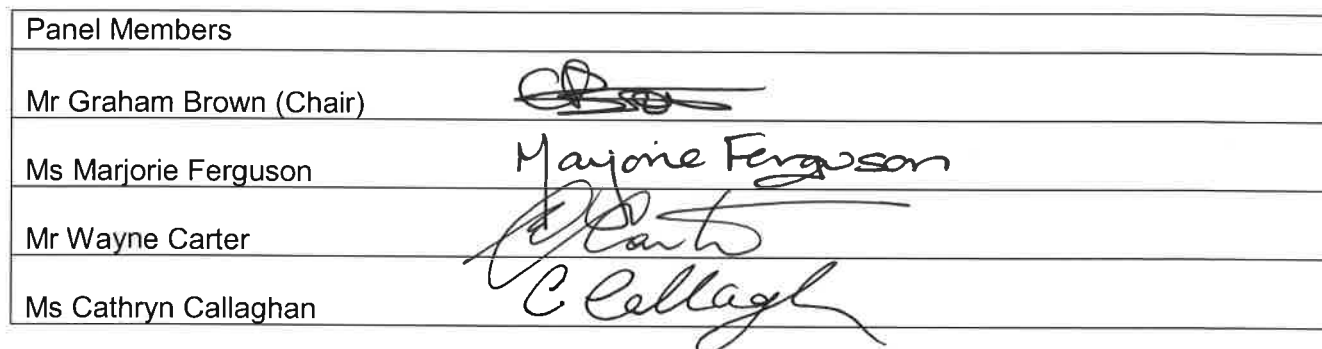 Panel Members
Mr Graham Brown (Chair)
Ms Marjorie Ferguson Marjorie Ferguson
Mr Wayne Carter
Ms Cathryn Callaghan C Callagh